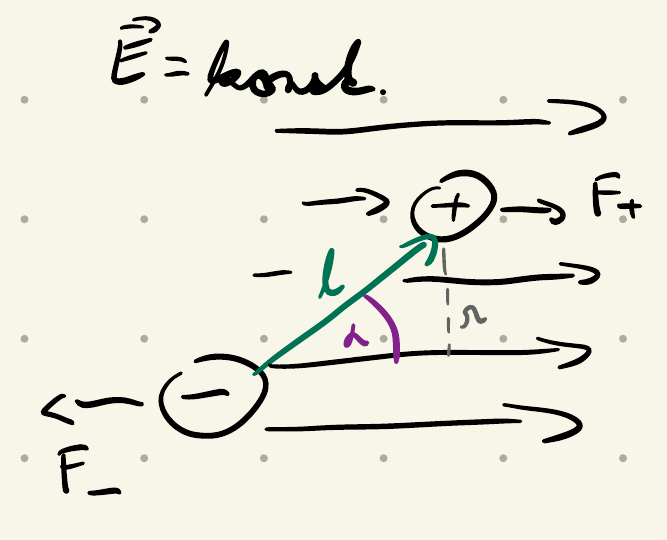 E⃗ = konst.
+
F₊
l
α
r
−
F₋